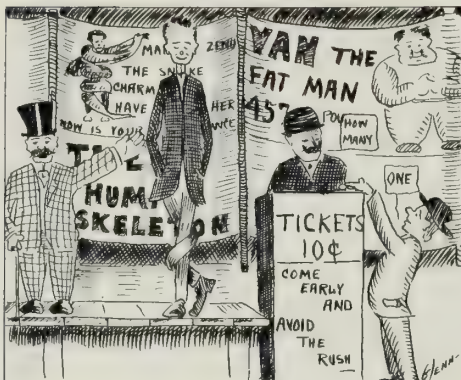 MA ZENU
THE SN KE
CHARM
HAVE HER
NOW IS YOUR
THE
HUM
SKELETON
VAN THE
FAT MAN
457 POU
HOW
MANY
ONE
TICKETS
10¢
COME
EARLY
AND
AVOID
THE
RUSH
GLENN